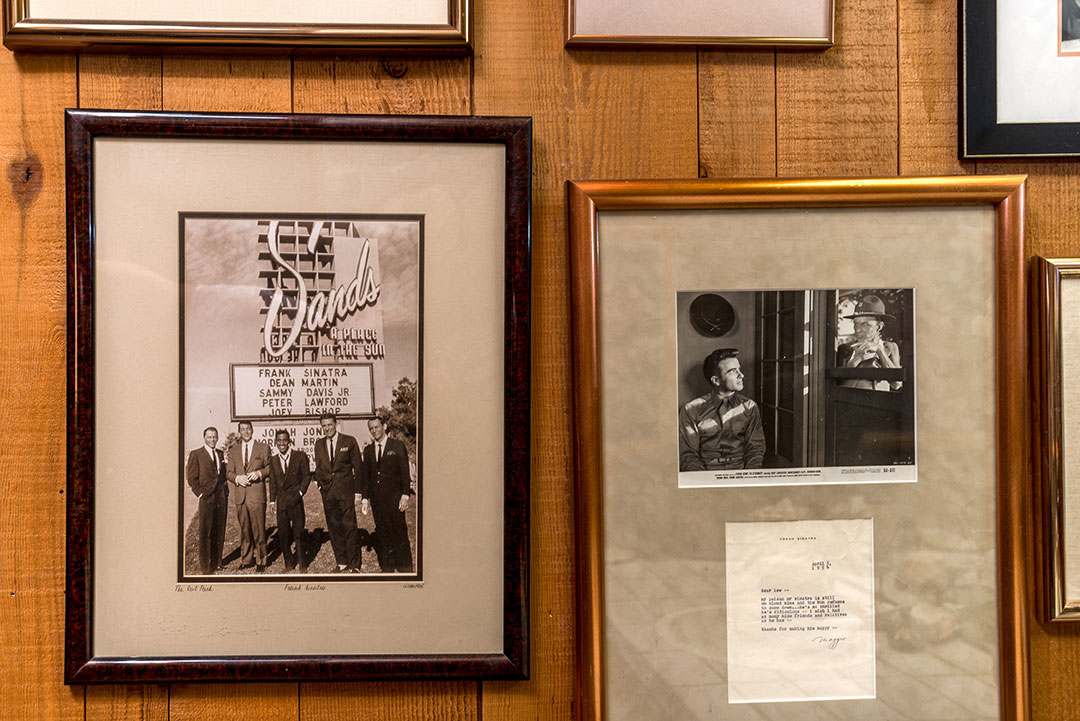 Sands
A PLACE
IN THE SUN
FRANK SINATRA
DEAN MARTIN
SAMMY DAVIS JR
PETER LAWFORD
JOEY BISHOP
JONAH JON
The Rat Pack
Frank Sinatra
FRANK SINATRA
April 7,
1954
dear lew --
my paisan mr sinatra is still
on cloud nine and the bum refuses
to come down...he's so thrilled
he's ridiculous -- i wish i had
so many nice friends and relatives
as he has --
thanks for making him happy --
Maggio